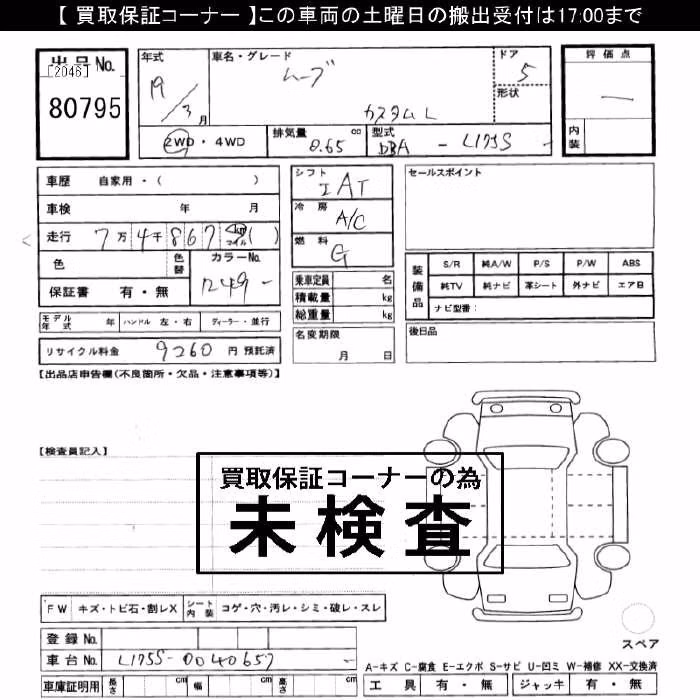 【 買取保証コーナー 】この車両の土曜日の搬出受付は17:00まで
出品No.
[2046]
80795
年式
19/3月
車名・グレード
ムーブ
カスタムL
ドア
5
形状
評価点
—
内装
2WD・4WD
排気量 0.65 cc
型式 DBA - L175S -
車歴 自家用・( )
車検 年 月
走行 7万4千867 km マイル ( )
色
色替
カラーNo.
保証書 有・無
モデル年式 年 ハンドル 左・右 ディーラー・並行
リサイクル料金 9260 円 預託済
シフト
IAT
冷房
A/C
燃料
G
乗車定員 名
積載量 kg
総重量 kg
名変期限
月 日
セールスポイント
装備品
S/R 純A/W P/S P/W ABS
純TV 純ナビ 革シート 外ナビ エアB
ナビ型番:
後日品
【出品店申告欄(不良箇所・欠品・注意事項等)】
【検査員記入】
買取保証コーナーの為
未検査
FW キズ・トビ石・割レX シート内装 コゲ・穴・汚レ・シミ・破レ・スレ
登録No.
車台No. L175S-0040657 -
車庫証明用 長さ cm 幅 cm 高さ cm
スペア
A-キズ C-腐食 E-エクボ S-サビ U-凹ミ W-補修 XX-交換済
工具 有・無 ジャッキ 有・無